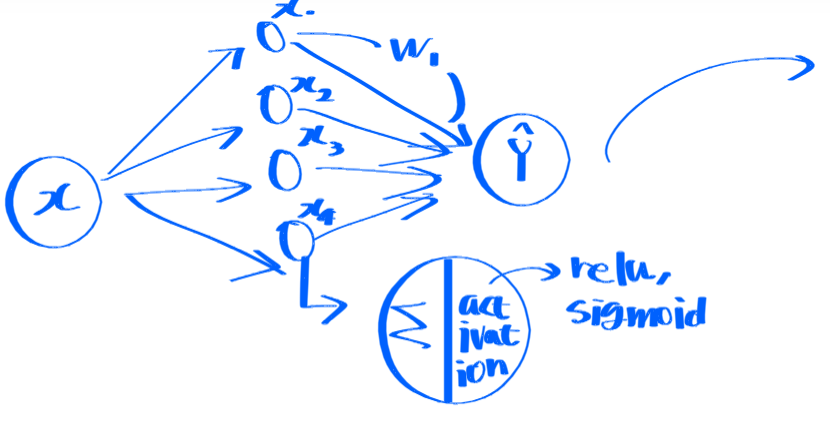 x.
w₁
x₂
x₃
x
Ŷ
x₄
Σ
act
ivat
ion
relu,
sigmoid